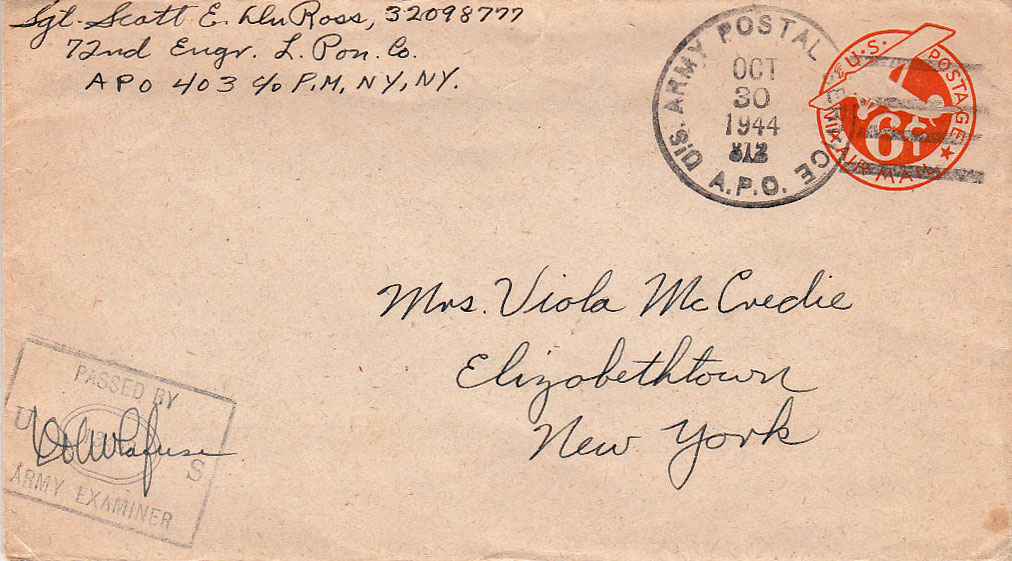 Sgt. Scott E. DuRoss, 32098777
72nd Engr. L. Pon. Co.
APO 403 c/o P.M, NY, NY.
ARMY POSTAL
OCT
30
1944
A.P.O.
U.S. POSTAGE
6¢
VIA AIR MAIL
Mrs. Viola McCredie
Elizabethtown
New York
PASSED BY
U S
ARMY EXAMINER